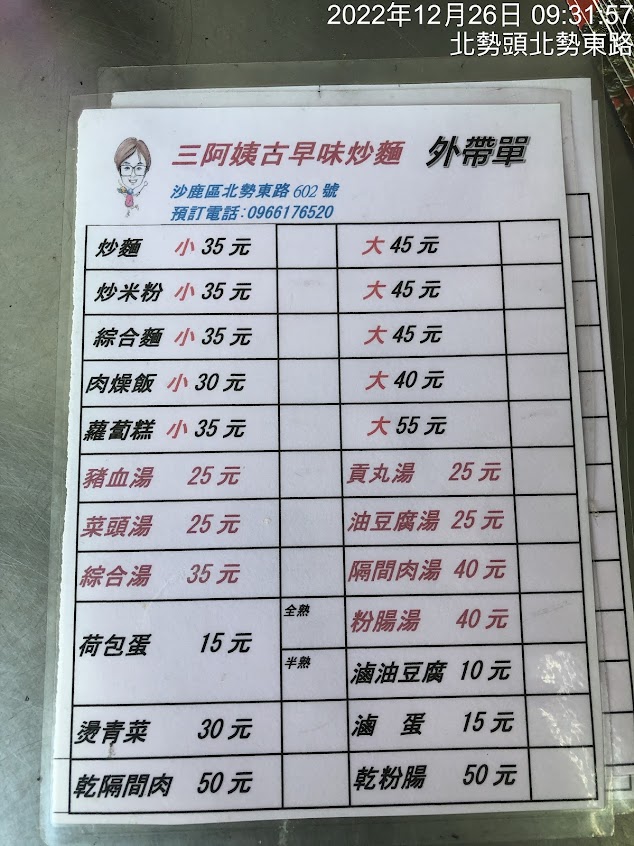 2022年12月26日 09:31:57
北勢頭北勢東路
三阿姨古早味炒麵 外帶單
沙鹿區北勢東路 602 號
預訂電話:0966176520
炒麵 小 35 元 大 45 元
炒米粉 小 35 元 大 45 元
綜合麵 小 35 元 大 45 元
肉燥飯 小 30 元 大 40 元
蘿蔔糕 小 35 元 大 55 元
豬血湯 25 元 貢丸湯 25 元
菜頭湯 25 元 油豆腐湯 25 元
綜合湯 35 元 隔間肉湯 40 元
荷包蛋 15 元 全熟 粉腸湯 40 元
半熟 滷油豆腐 10 元
燙青菜 30 元 滷 蛋 15 元
乾隔間肉 50 元 乾粉腸 50 元